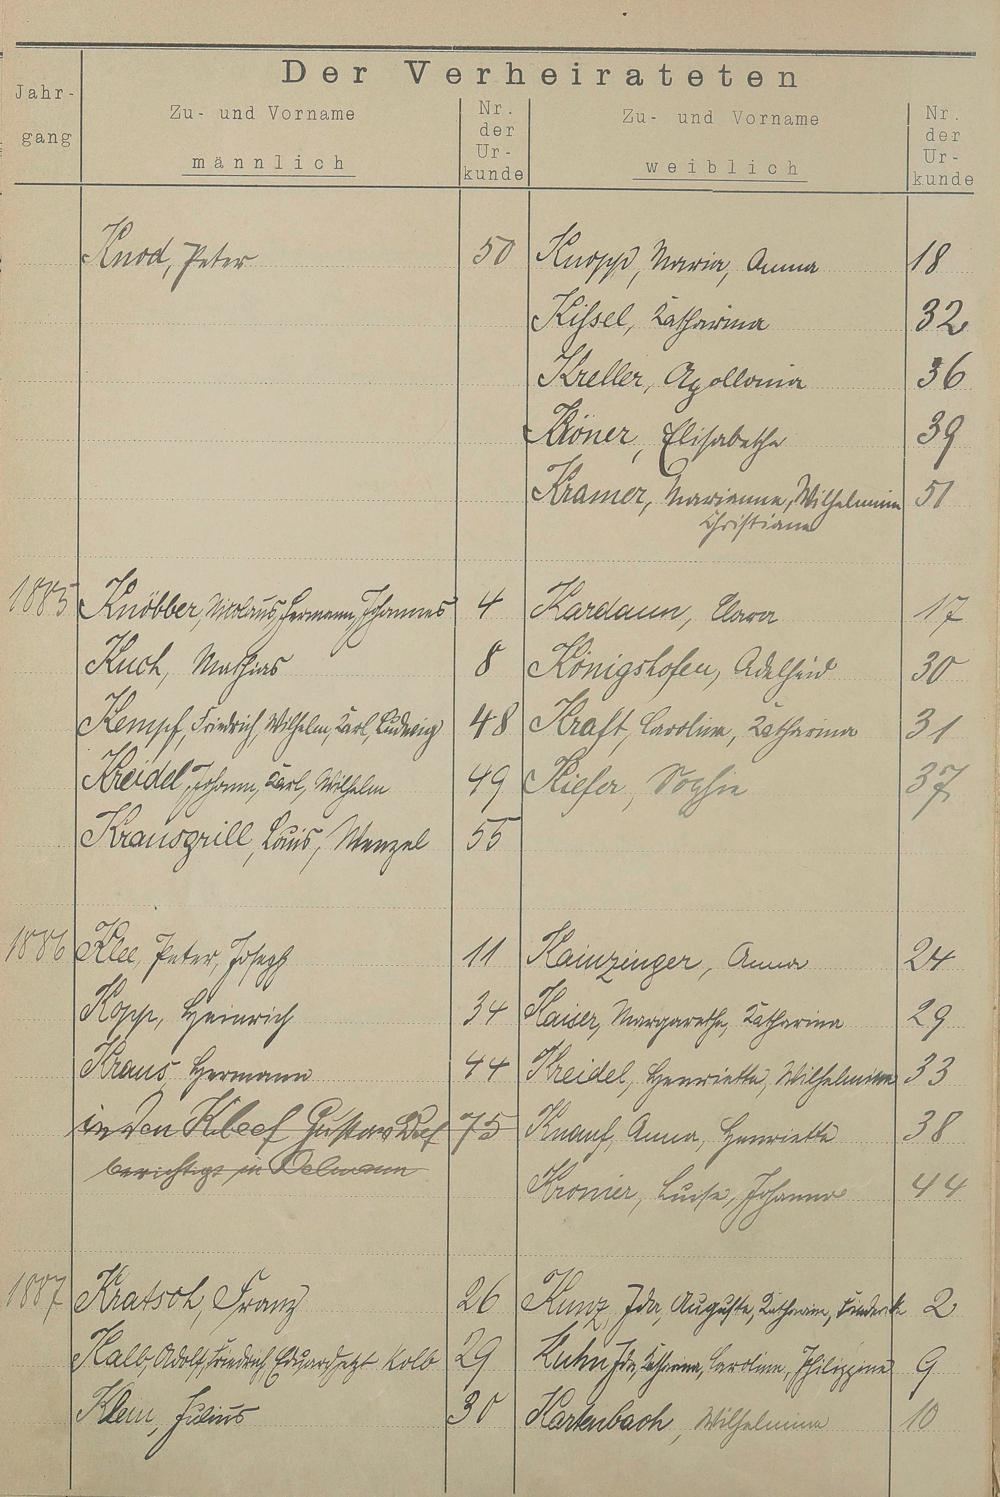 Der Verheirateten
Jahr-
gang
Zu- und Vorname
männlich
Nr.
der
Ur-
kunde
Zu- und Vorname
weiblich
Nr.
der
Ur-
kunde
Knod, Peter 50 Knopp, Maria, Anna 18
Kissel, Katharina 32
Kreller, Apollonia 36
Kröner, Elisabetha 39
Kramer, Marianna, Wilhelmina 51
Christiana
1885 Knöbber, Nicolaus, Hermann, Johannes 4 Kardaun, Clara 17
Kuch, Mathias 8 Königshofen, Adelheid 30
Kempf, Friedrich, Wilhelm, Karl, Ludwig 48 Kraft, Carolina, Katharina 31
Kreidel, Johann, Karl, Wilhelm 49 Kiefer, Sophie 37
Krausgrill, Louis, Wenzel 55
1886 Klee, Peter, Joseph 11 Kainzinger, Anna 24
Kopp, Heinrich 34 Kaiser, Margaretha, Katharina 29
Kraus, Hermann 44 Kreidel, Henrietta, Wilhelmina 33
in den Kleef Gustav 75 Knauf, Anna, Henriette 38
berichtigt in
Kromer, Luise, Johanna 44
1887 Kratsch, Franz 26 Kunz, Ida, Auguste, Katharina, Friederike 2
Kalb, Adolf, Friedrich, Eduard jetzt Kolb 29 Kuhn Ida, Katharina, Carolina, Philippina 9
Klein, Julius 30 Kartenbach, Wilhelmina 10